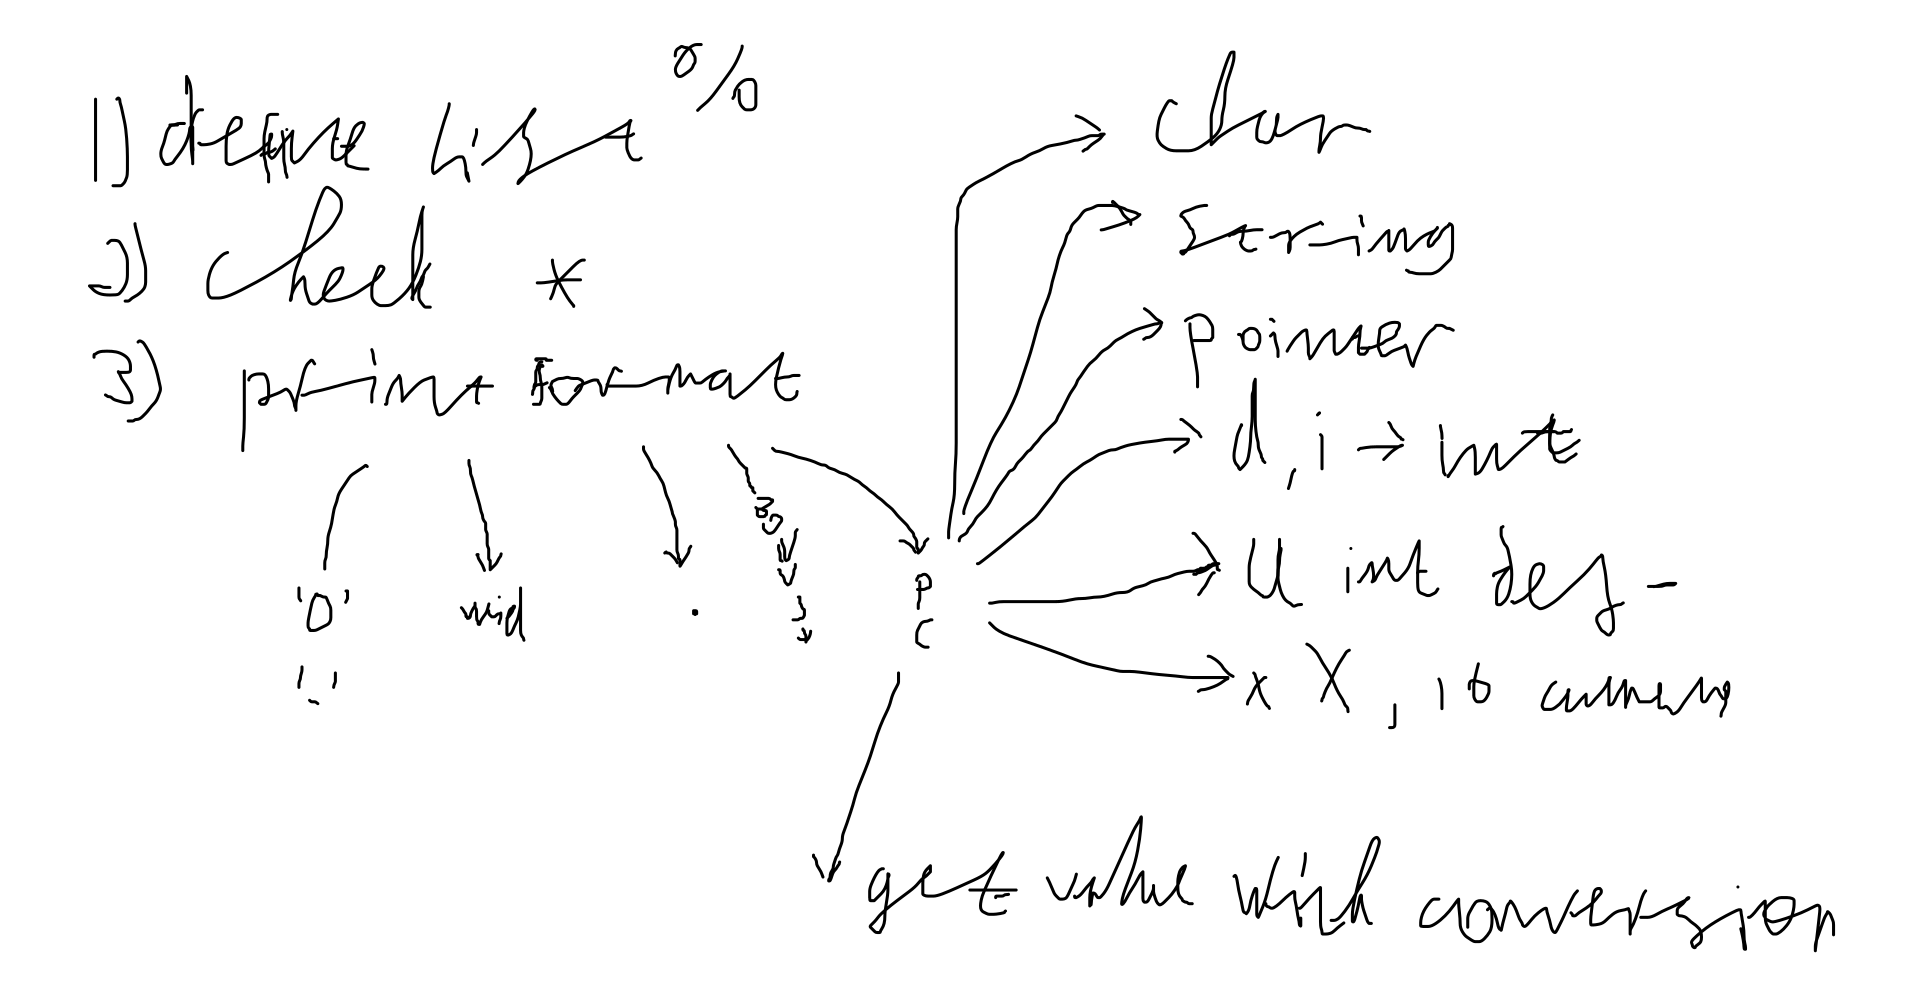 1) define list %
2) check *
3) print format
'0' wid . P
'-' C
char
string
pointer
d, i → int
U int def -
x X, 16
get value with conversion